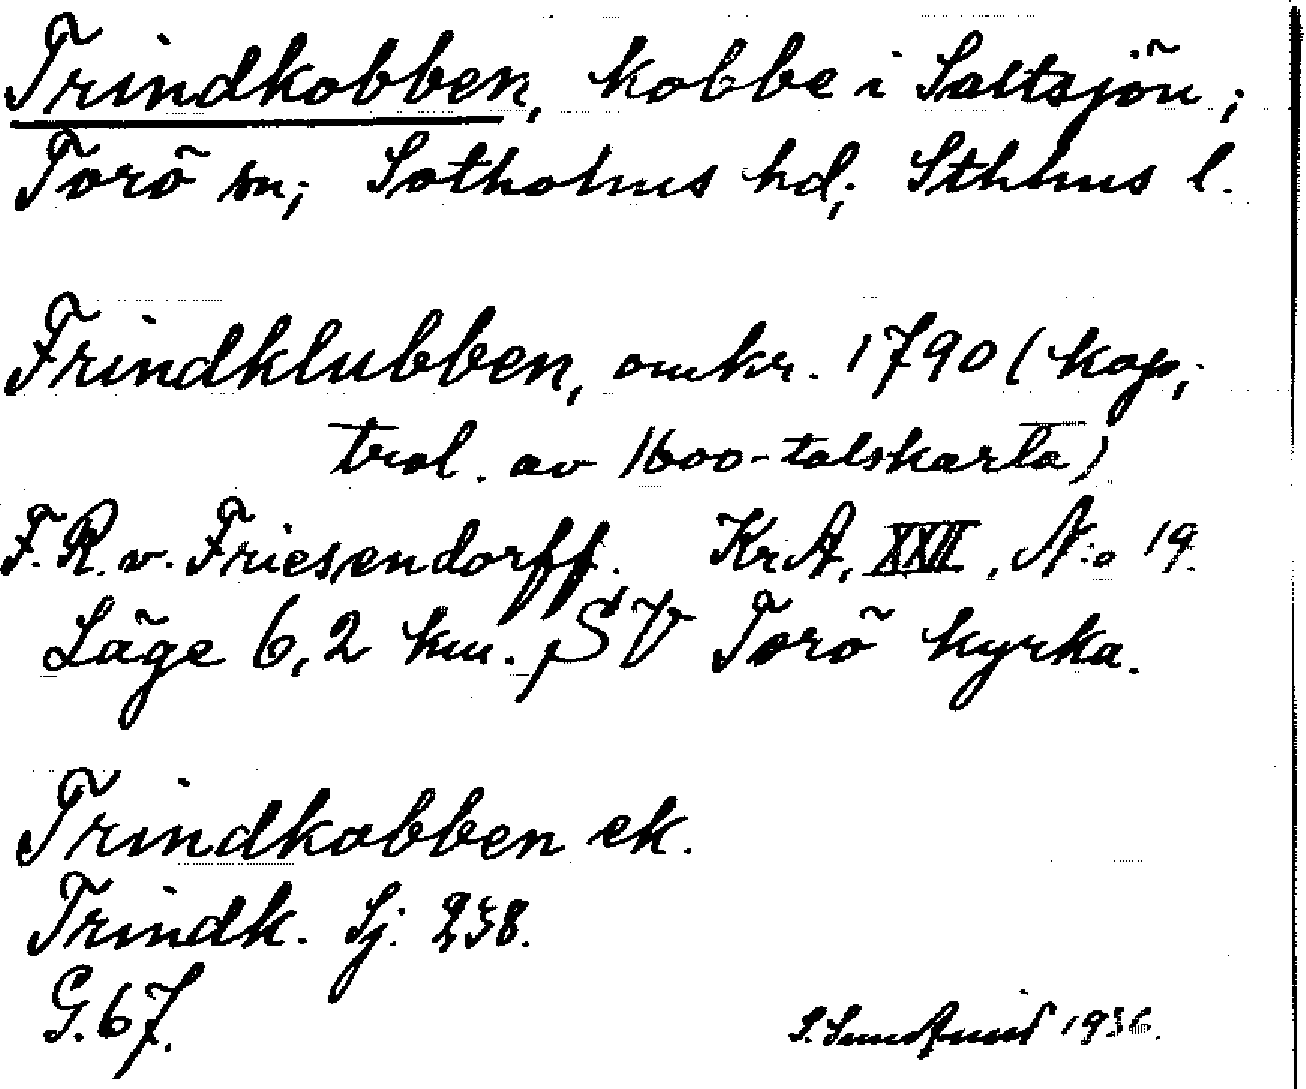 Trindkobben, kobbe i Saltsjön;
Torö sn; Sotholms hd; Sthlms l.
Frindklubben, omkr. 1790 (kop,
trol. av 1600-talskarta)
F. R. v. Friesendorff. KrA, XXII, N:o 19.
Läge 6,2 km. SV Torö kyrka.
Trindkobben ek.
Trindk. Sj. 238.
G. 67.
S. 1936.